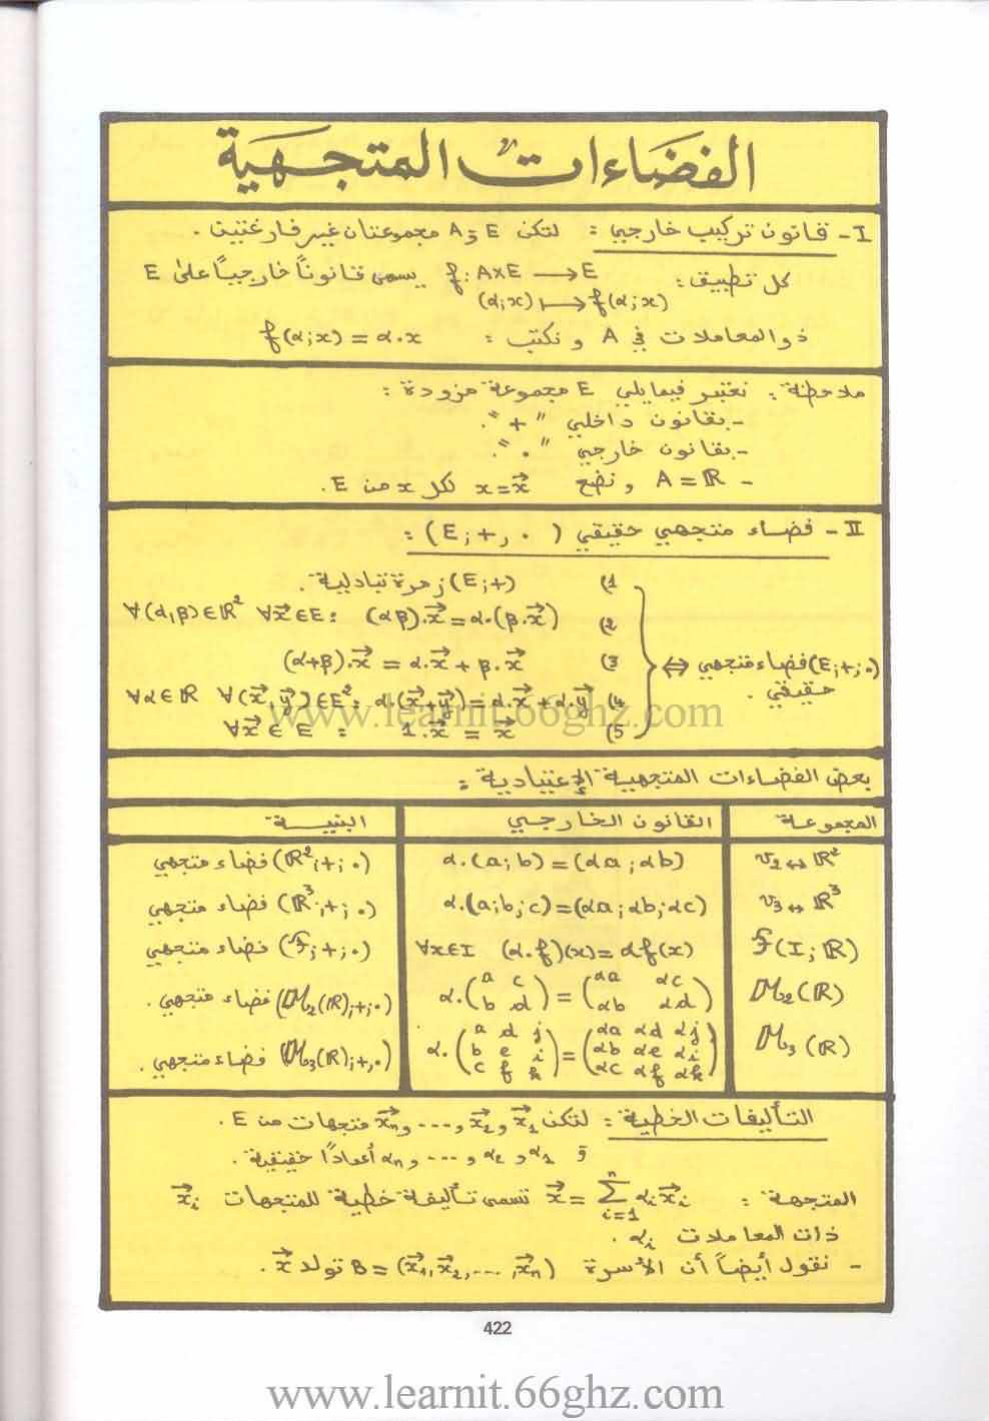 الفضاءات المتجهية
I - قانون تركيب خارجي : لتكن E و A مجموعتان غير فارغتين .
كل تطبيق : f : A×E → E يسمى قانوناً خارجياً على E
(α;x) ↦ f(α;x)
ذو المعاملات في A و نكتب : f(α;x) = α.x
ملاحظة : نعتبر فيما يلي E مجموعة مزودة :
- بقانون داخلي "+".
- بقانون خارجي "."
- A = ℝ و نضع x = x⃗ لكل x من E .
II - فضاء متجهي حقيقي ( E ; + , . ) :
1) (E;+) زمرة تبادلية .
2) ∀(α,β)∈ℝ² ∀x⃗∈E : (αβ).x⃗ = α.(β.x⃗)
3) (α+β).x⃗ = α.x⃗ + β.x⃗
(E;+;.) فضاء متجهي ⇔
حقيقي .
4) ∀α∈ℝ ∀(x⃗,y⃗)∈E² : α.(x⃗+y⃗) = α.x⃗ + α.y⃗
5) ∀x⃗ ∈ E : 1.x⃗ = x⃗
www.learnit.66ghz.com
بعض الفضاءات المتجهية الإعتيادية :
المجموعة القانون الخارجي البنية
𝒱₂ ↔ ℝ² α.(a;b) = (αa;αb) (ℝ²;+;.) فضاء متجهي
𝒱₃ ↔ ℝ³ α.(a;b;c) = (αa;αb;αc) (ℝ³;+;.) فضاء متجهي
ℱ(I;ℝ) ∀x∈I (α.f)(x) = αf(x) (ℱ;+;.) فضاء متجهي
M₂(ℝ) α.(a c / b d) = (αa αc / αb αd) (M₂(ℝ);+;.) فضاء متجهي .
M₃(ℝ) α.(a d j / b e i / c f k) = (αa αd αj / αb αe αi / αc αf αk) (M₃(ℝ);+;.) فضاء متجهي .
التأليفات الخطية : لتكن x⃗₁ و x⃗₂ و ... و x⃗n متجهات من E .
و α₁ و α₂ و ... و αn أعدادًا حقيقية .
المتجهة : x⃗ = Σ_{i=1}^{n} αi x⃗i تسمى تأليفة خطية للمتجهات x⃗i
ذات المعاملات αi .
- نقول أيضاً أن الأسرة B = (x⃗₁, x⃗₂, ..., x⃗n) تولد x⃗ .
422
www.learnit.66ghz.com